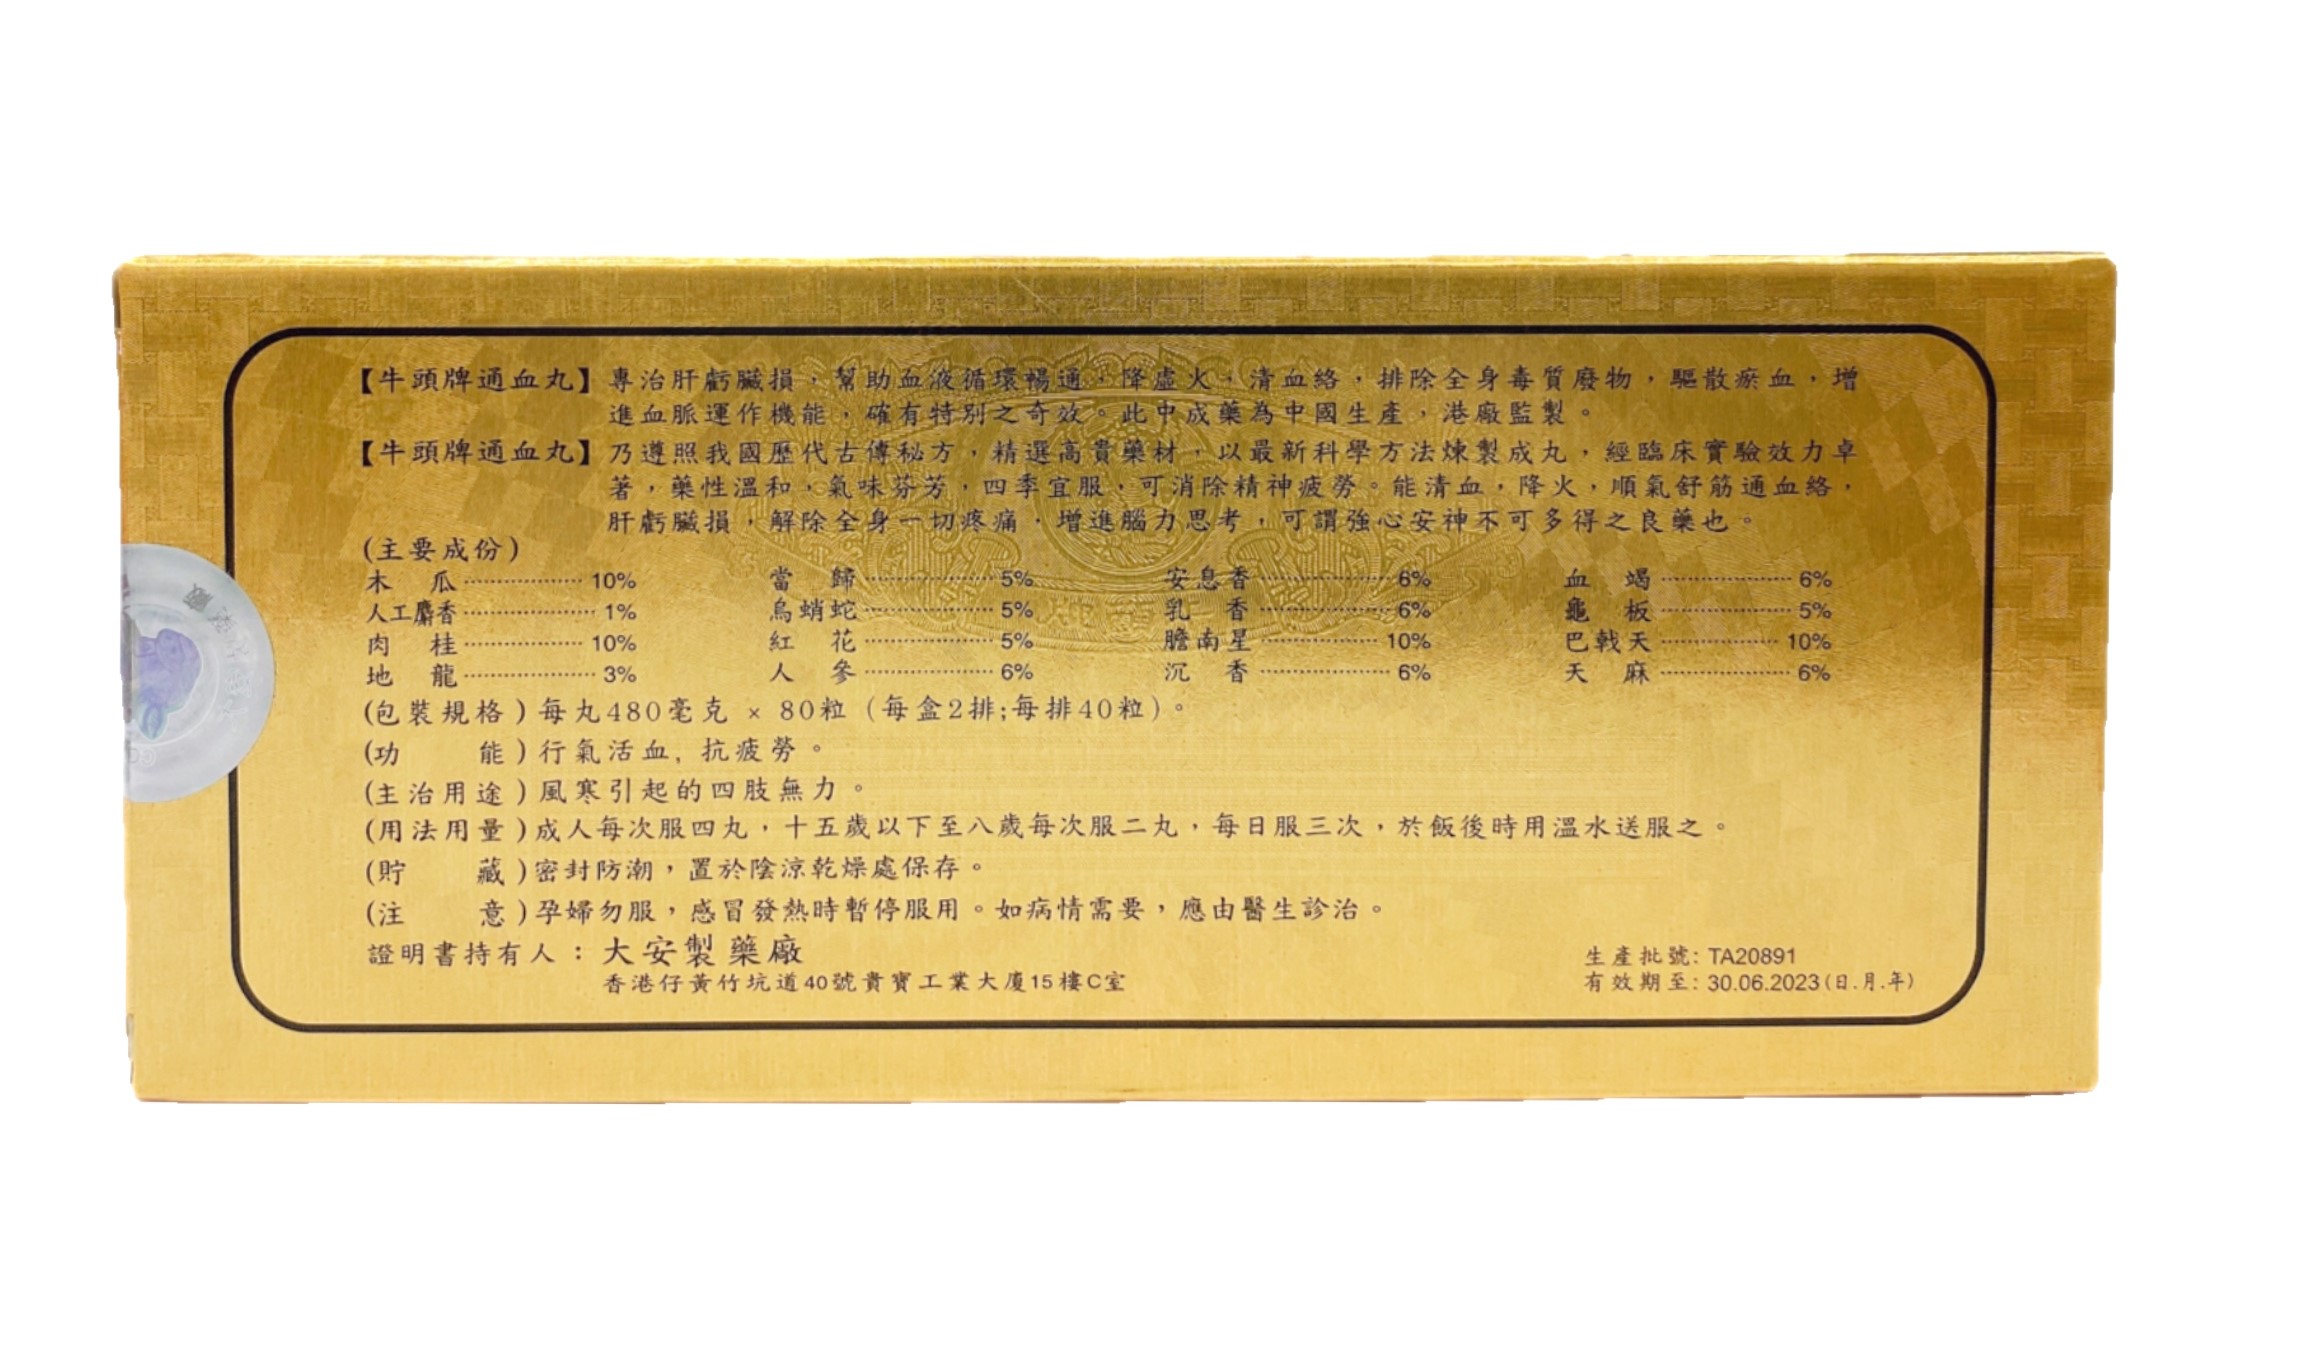 【牛頭牌通血丸】專治肝虧臟損，幫助血液循環暢通，降虛火，清血絡，排除全身毒質廢物，驅散瘀血，增
進血脈運作機能，確有特別之奇效。此中成藥為中國生產，港廠監製。
【牛頭牌通血丸】乃遵照我國歷代古傳秘方，精選高貴藥材，以最新科學方法煉製成丸，經臨床實驗效力卓
著，藥性溫和，氣味芬芳，四季宜服，可消除精神疲勞。能清血，降火，順氣舒筋通血絡，
肝虧臟損，解除全身一切疼痛，增進腦力思考，可謂強心安神不可多得之良藥也。
(主要成份)
木 瓜 10% 當 歸 5% 安息香 6% 血 竭 6%
人工麝香 1% 烏蛸蛇 5% 乳 香 6% 龜 板 5%
肉 桂 10% 紅 花 5% 膽南星 10% 巴戟天 10%
地 龍 3% 人 參 6% 沉 香 6% 天 麻 6%
(包裝規格)每丸480毫克 × 80粒 (每盒2排;每排40粒)。
(功 能)行氣活血, 抗疲勞。
(主治用途)風寒引起的四肢無力。
(用法用量)成人每次服四丸，十五歲以下至八歲每次服二丸，每日服三次，於飯後時用溫水送服之。
(貯 藏)密封防潮，置於陰涼乾燥處保存。
(注 意)孕婦勿服，感冒發熱時暫停服用。如病情需要，應由醫生診治。
證明書持有人：大安製藥廠
香港仔黃竹坑道40號貴寶工業大廈15樓C室
生產批號: TA20891
有效期至: 30.06.2023(日.月.年)